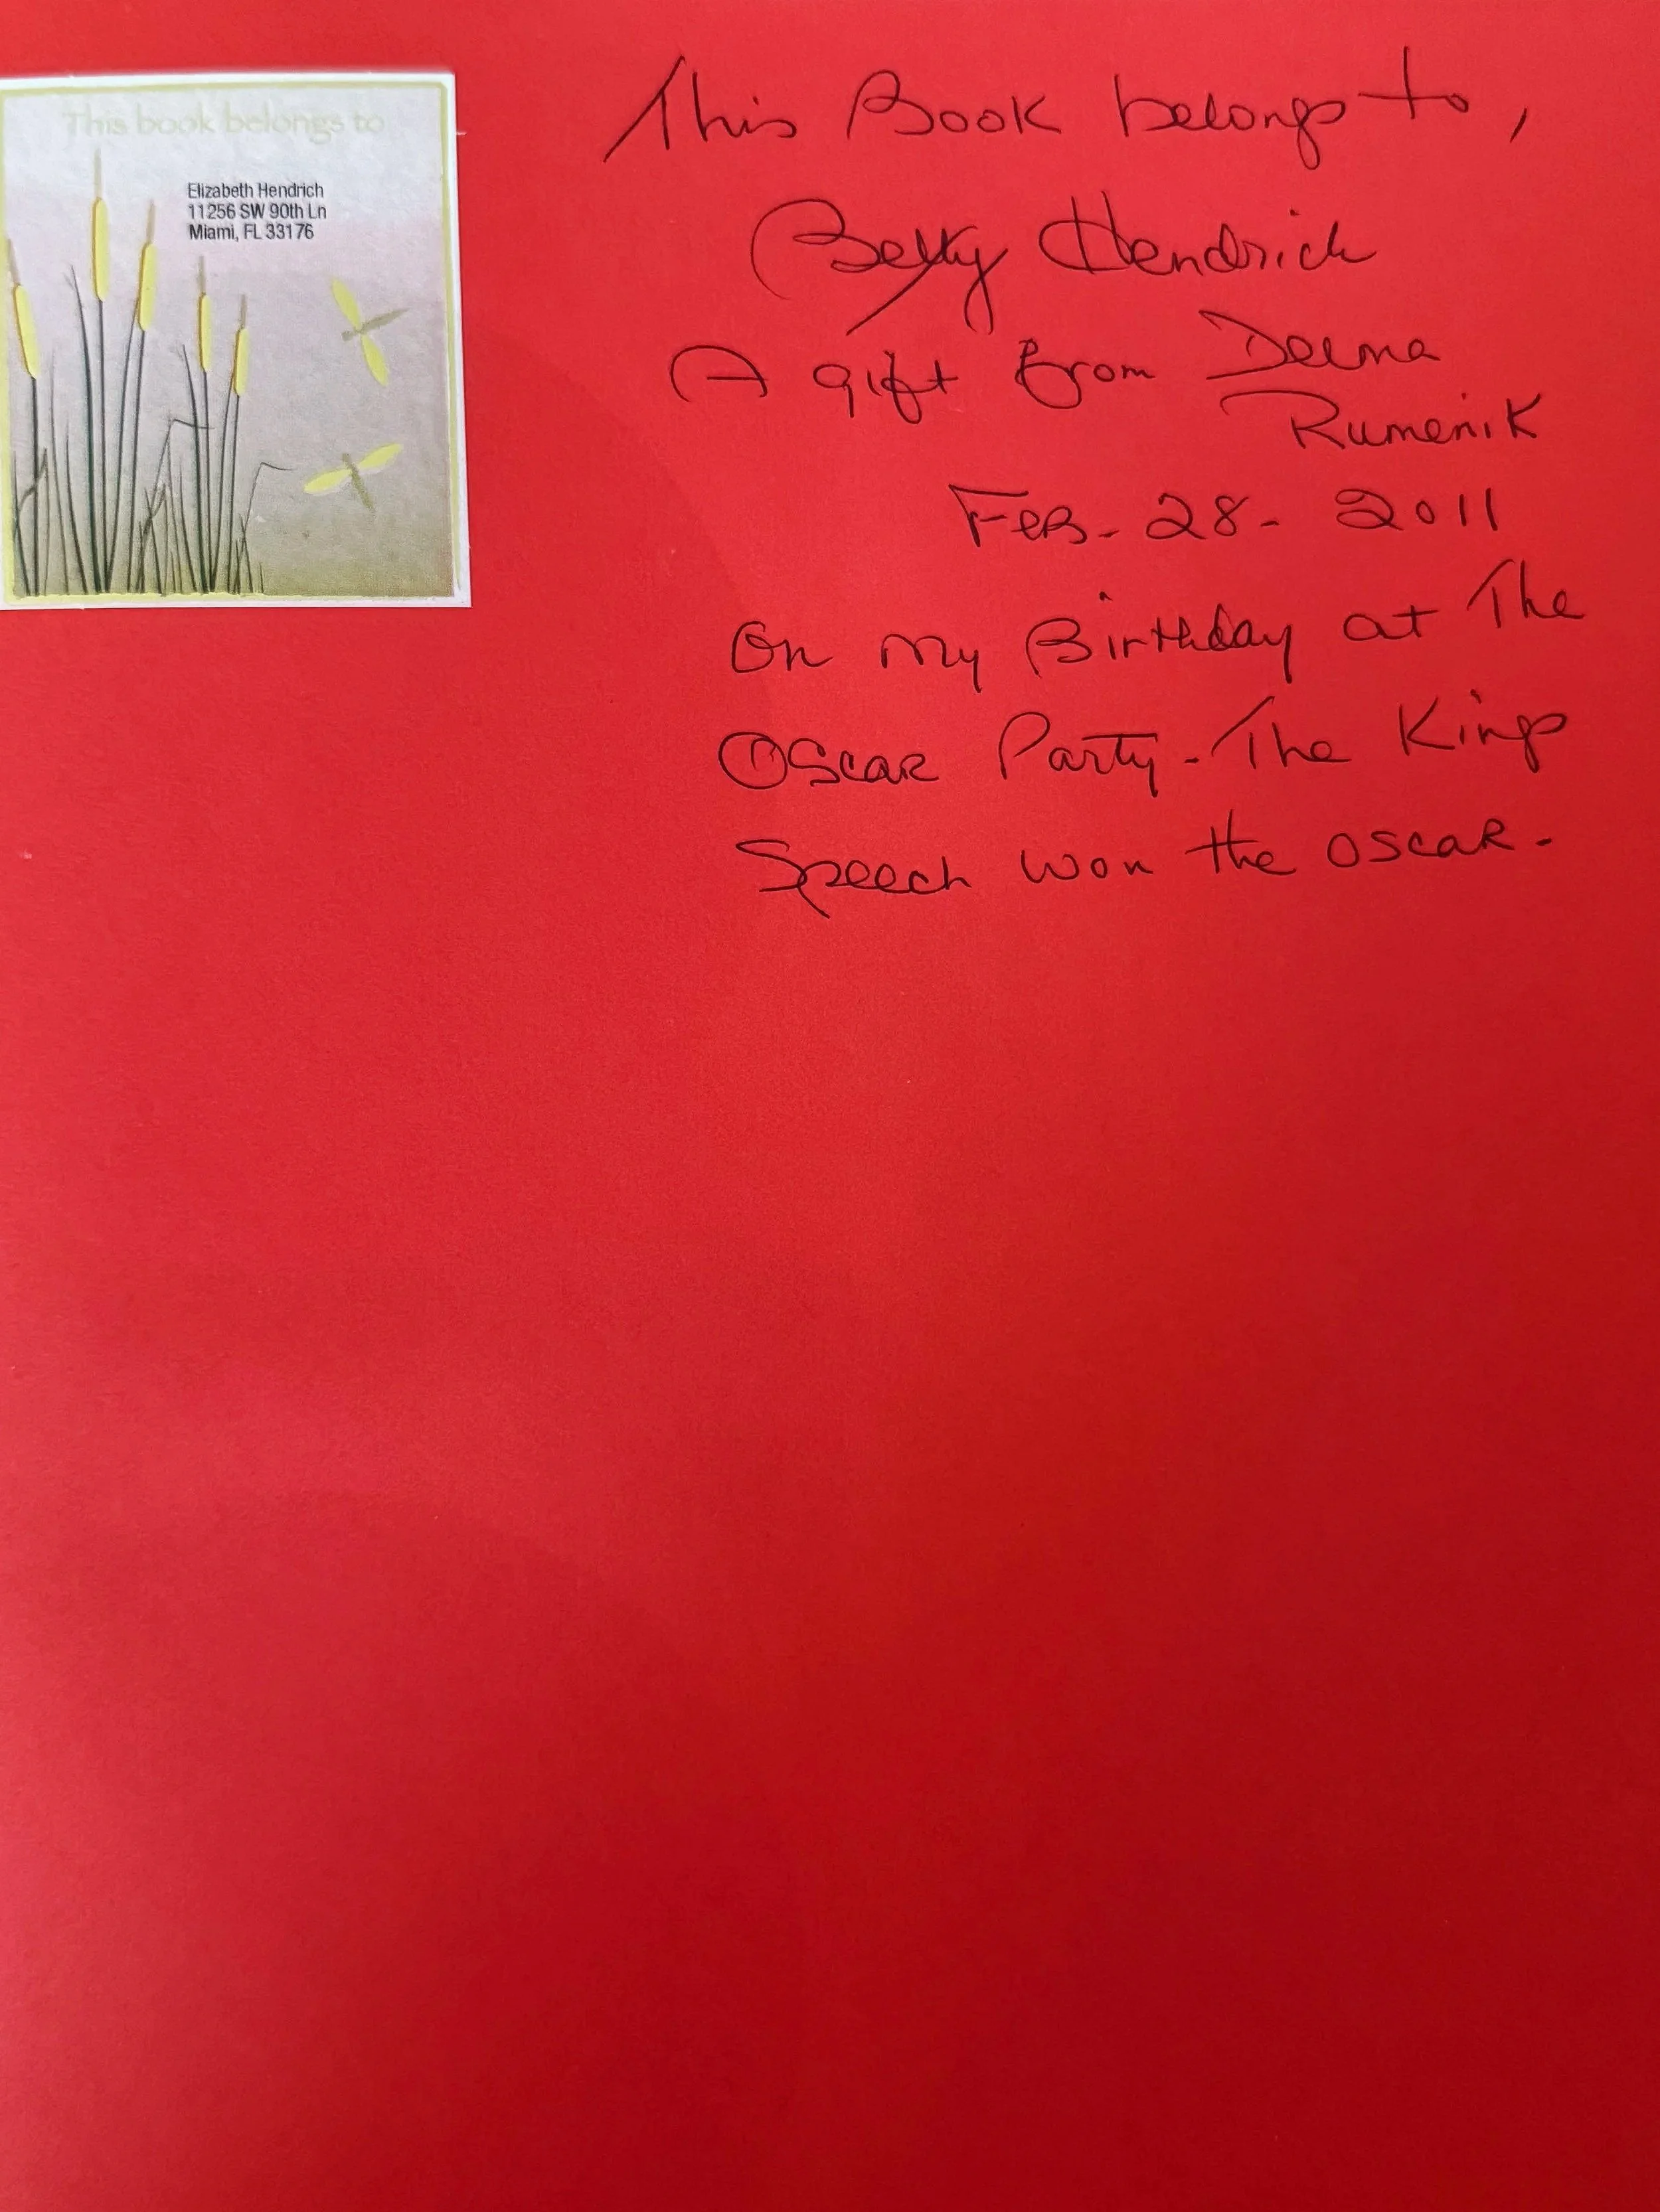 This book belongs to
Elizabeth Hendrich
11256 SW 90th Ln
Miami, FL 33176
This Book belongs to,
Betty Hendrich
A gift from Delma
Rumenik
Feb. 28 - 2011
On my Birthday at The
Oscar Party - The Kings
Speech won the Oscar.